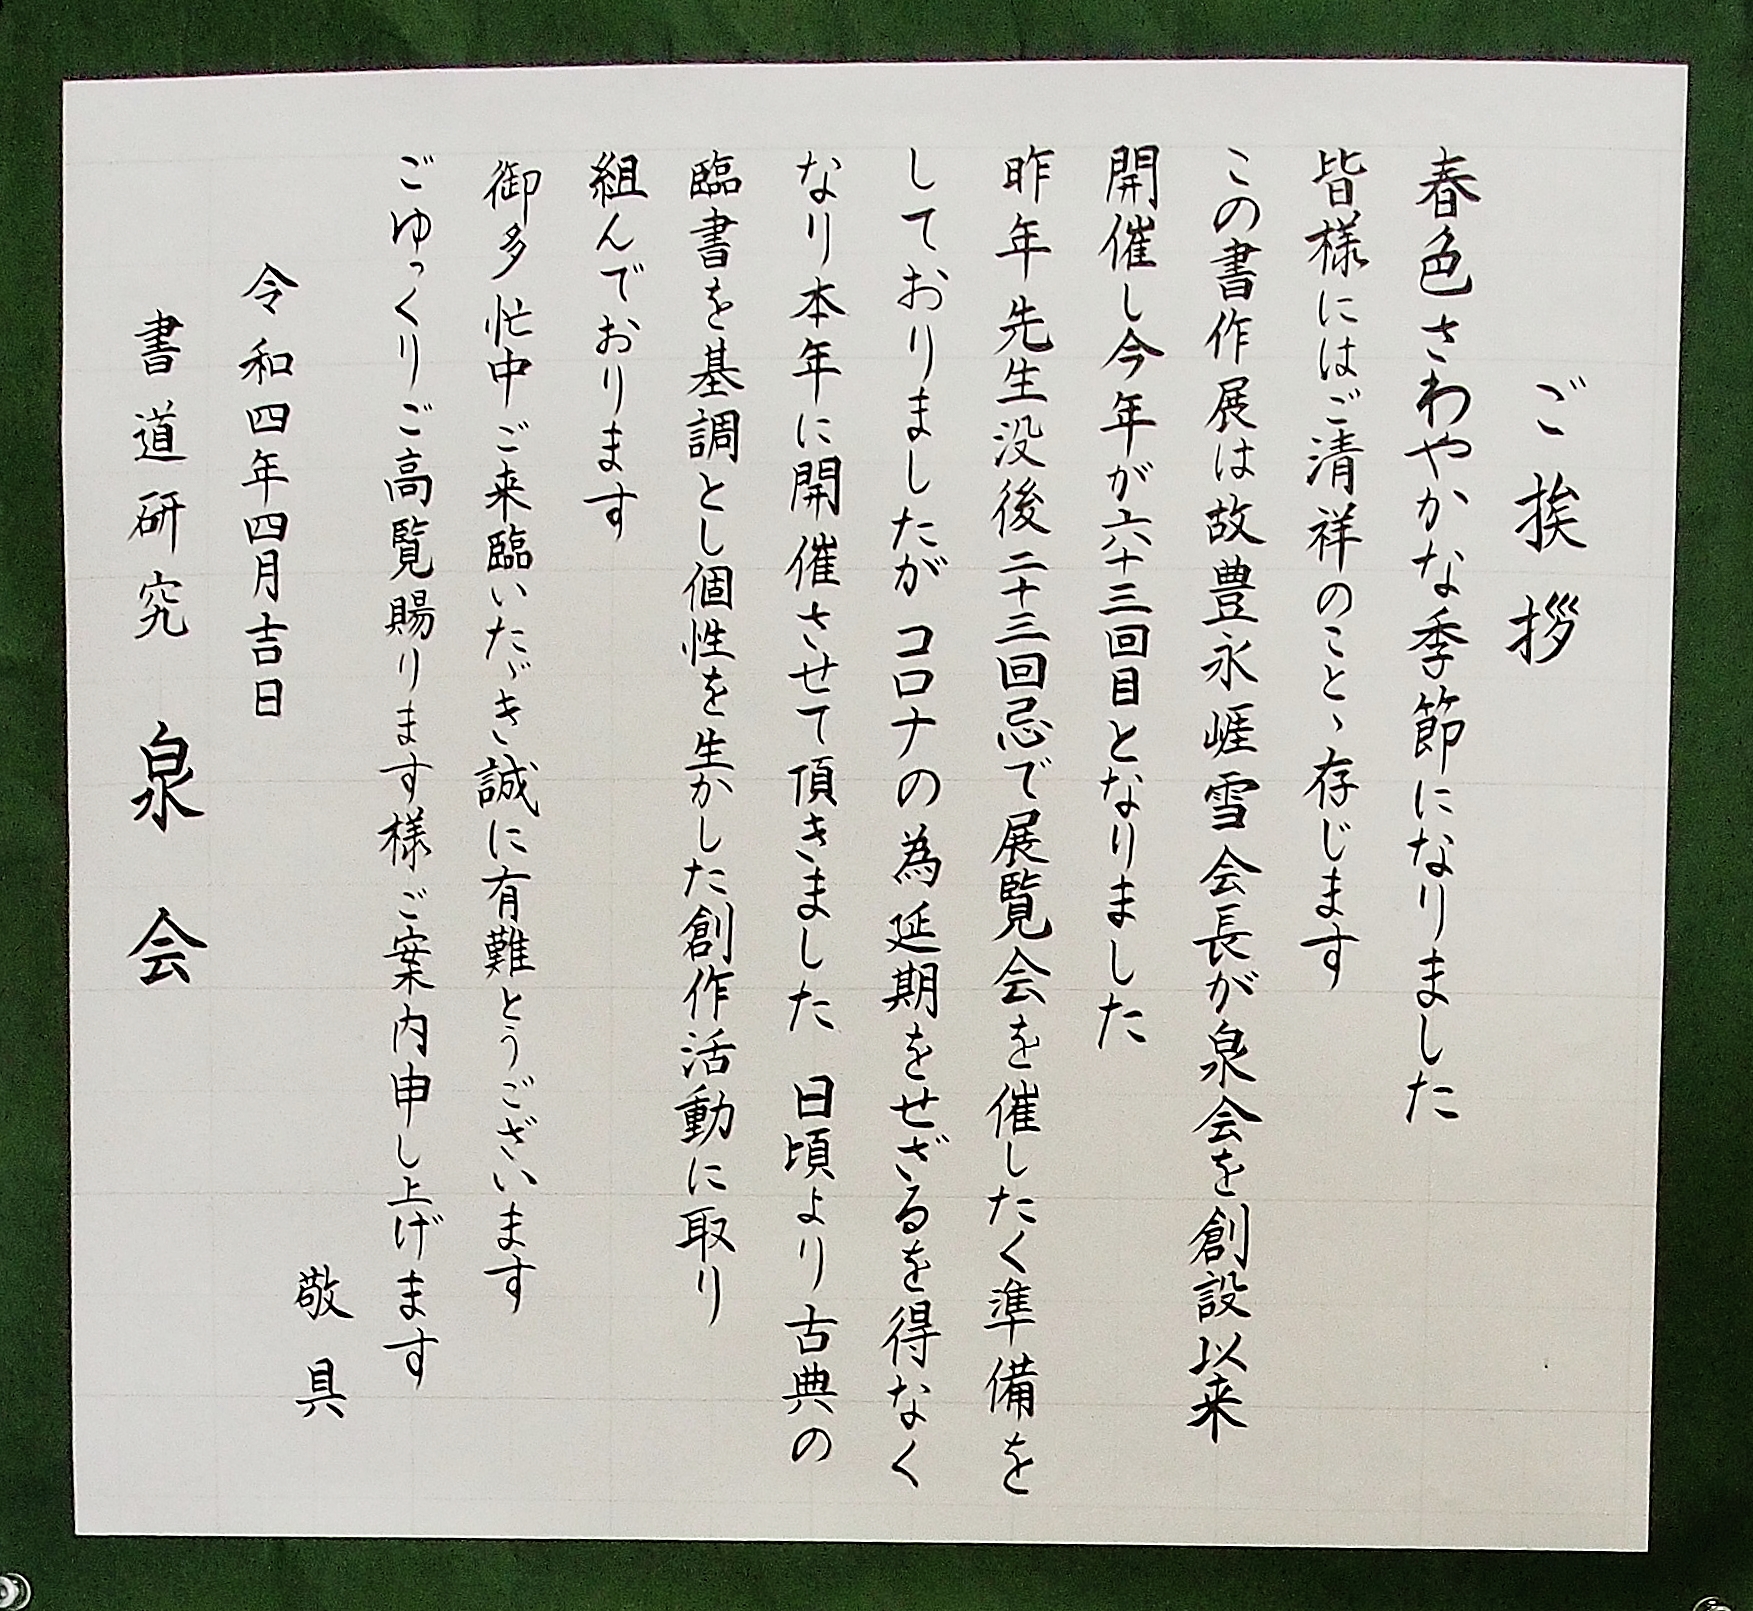 ご挨拶
春色さわやかな季節になりました
皆様にはご清祥のことゝ存じます
この書作展は故豊永崕雪会長が泉会を創設以来
開催し今年が六十三回目となりました
昨年先生没後二十三回忌で展覧会を催したく準備を
しておりましたがコロナの為延期をせざるを得なく
なり本年に開催させて頂きました 日頃より古典の
臨書を基調とし個性を生かした創作活動に取り
組んでおります
御多忙中ご来臨いたゞき誠に有難とうございます
ごゆっくりご高覧賜ります様ご案内申し上げます
敬具
令和四年四月吉日
書道研究 泉会